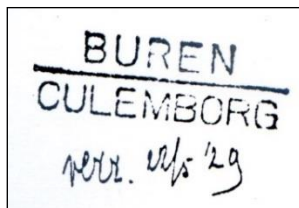 BUREN
CULEMBORG
verz. '29